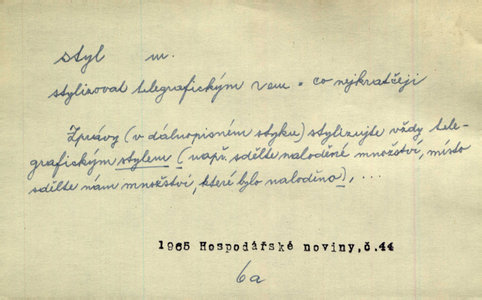 styl m.
stylizovat telegrafickým sem = co nejkratčeji
Zprávy (v dálnopisném styku) stylizujte vždy tele-
grafickým stylem (např. sdělte naloděné množství, místo
sdělte nám množství, které bylo naloděno), ...
1965 Hospodářské noviny,č.44
6a